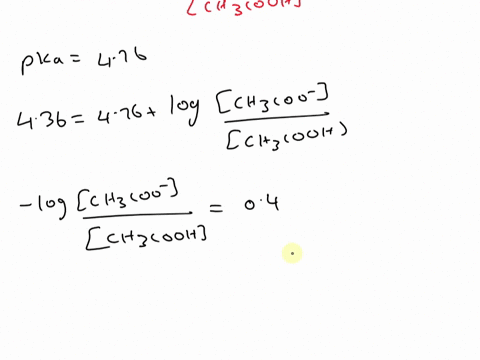 [CH3COOH]
pka = 4.76
4.36 = 4.76 + log [CH3COO-] / [CH3COOH)
-log [CH3COO-] / [CH3COOH] = 0.4